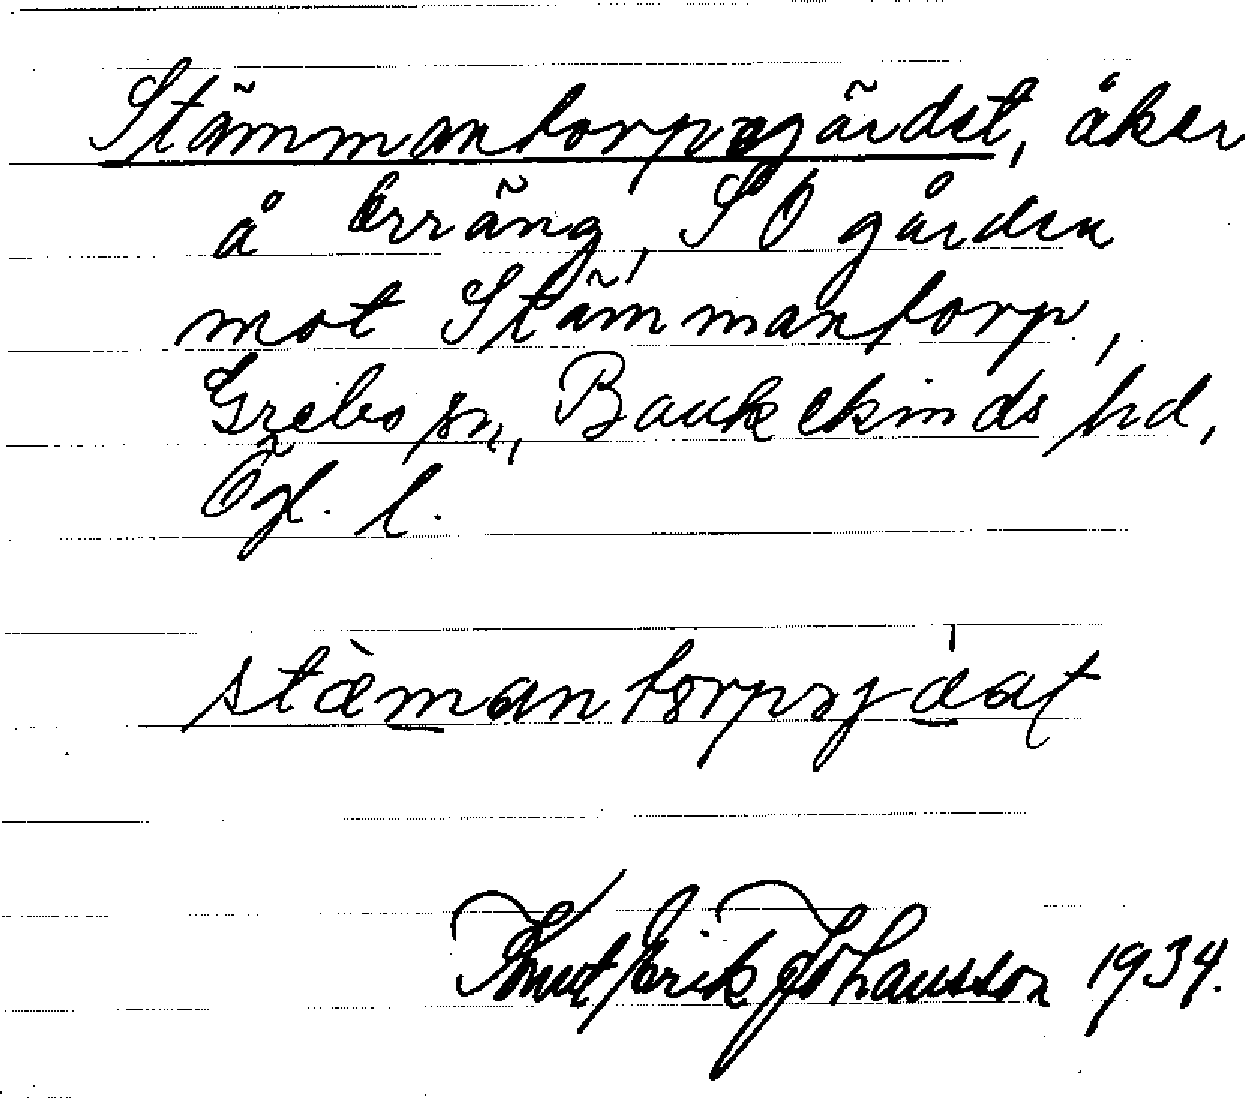 Stämmantorpsgärdet, åker
å Erräng, SO gården
mot Stämmantorp,
Grebo sn, Bankekinds hd,
Ögl. l.
Knut Erik Johansson 1934.